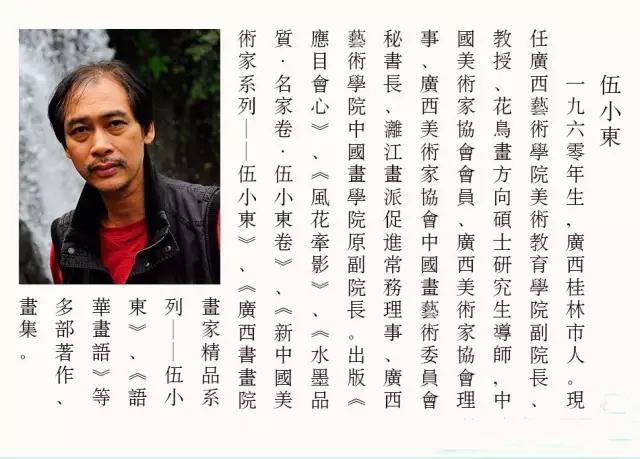 伍小東
一九六零年生，廣西桂林市人。現
任廣西藝術學院美術教育學院副院長、
教授、花鳥畫方向碩士研究生導師，中
國美術家協會會員、廣西美術家協會理
事、廣西美術家協會中國畫藝術委員會
秘書長、灕江畫派促進常務理事、廣西
藝術學院中國畫學院原副院長。出版《
應目會心》、《風花牽影》、《水墨品
質·名家卷·伍小東卷》、《新中國美
術家系列——伍小東》、《廣西書畫院
畫家精品系
列——伍小
東》、《語
華畫語》等
多部著作、
畫集。